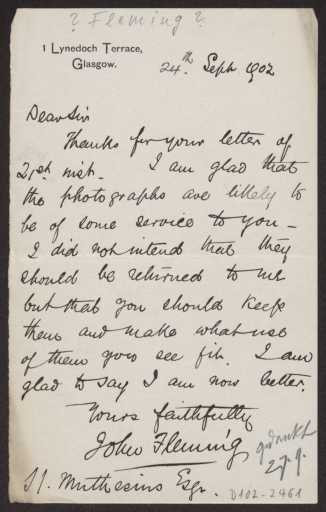 ? Fleming ?
1 Lynedoch Terrace,
Glasgow.
24th Sept 1902
Dear Sir
Thanks for your letter of
21st inst. I am glad that
the photographs are likely to
be of some service to you –
I did not intend that they
should be returned to me
but that you should keep
them and make what use
of them you see fit. I am
glad to say I am now better.
Yours faithfully
John Fleming
gedankt
H. Muthesius Esqr.
D102-2461